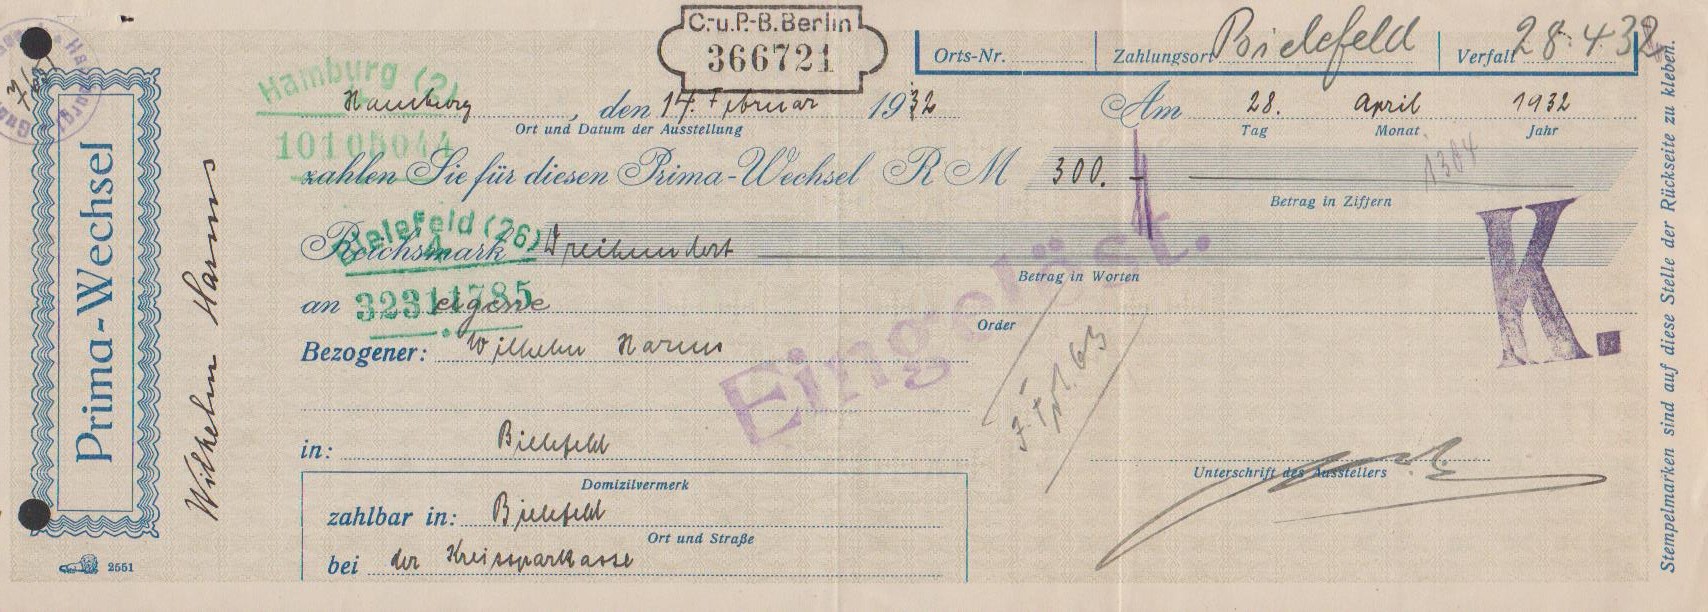 C.-u.P.-B.Berlin
366721
Orts-Nr. Zahlungsort Bielefeld Verfall 28.4.32
Hamburg (2)
Hamburg, den 14. Februar 1932 Am 28. April 1932
Ort und Datum der Ausstellung Tag Monat Jahr
10105044
zahlen Sie für diesen Prima-Wechsel RM 300.– 1304
Betrag in Ziffern
Bielefeld (26)
Reichsmark Dreihundert
Betrag in Worten
Eingelöst.
K.
an eigene Order
32311785
Bezogener: Wilhelm Harms
in: Bielefeld
Unterschrift des Ausstellers
Domizilvermerk
zahlbar in: Bielefeld
Ort und Straße
bei der Kreissparkasse
Prima-Wechsel
2551
Wilhelm Harms
Stempelmarken sind auf diese Stelle der Rückseite zu kleben.